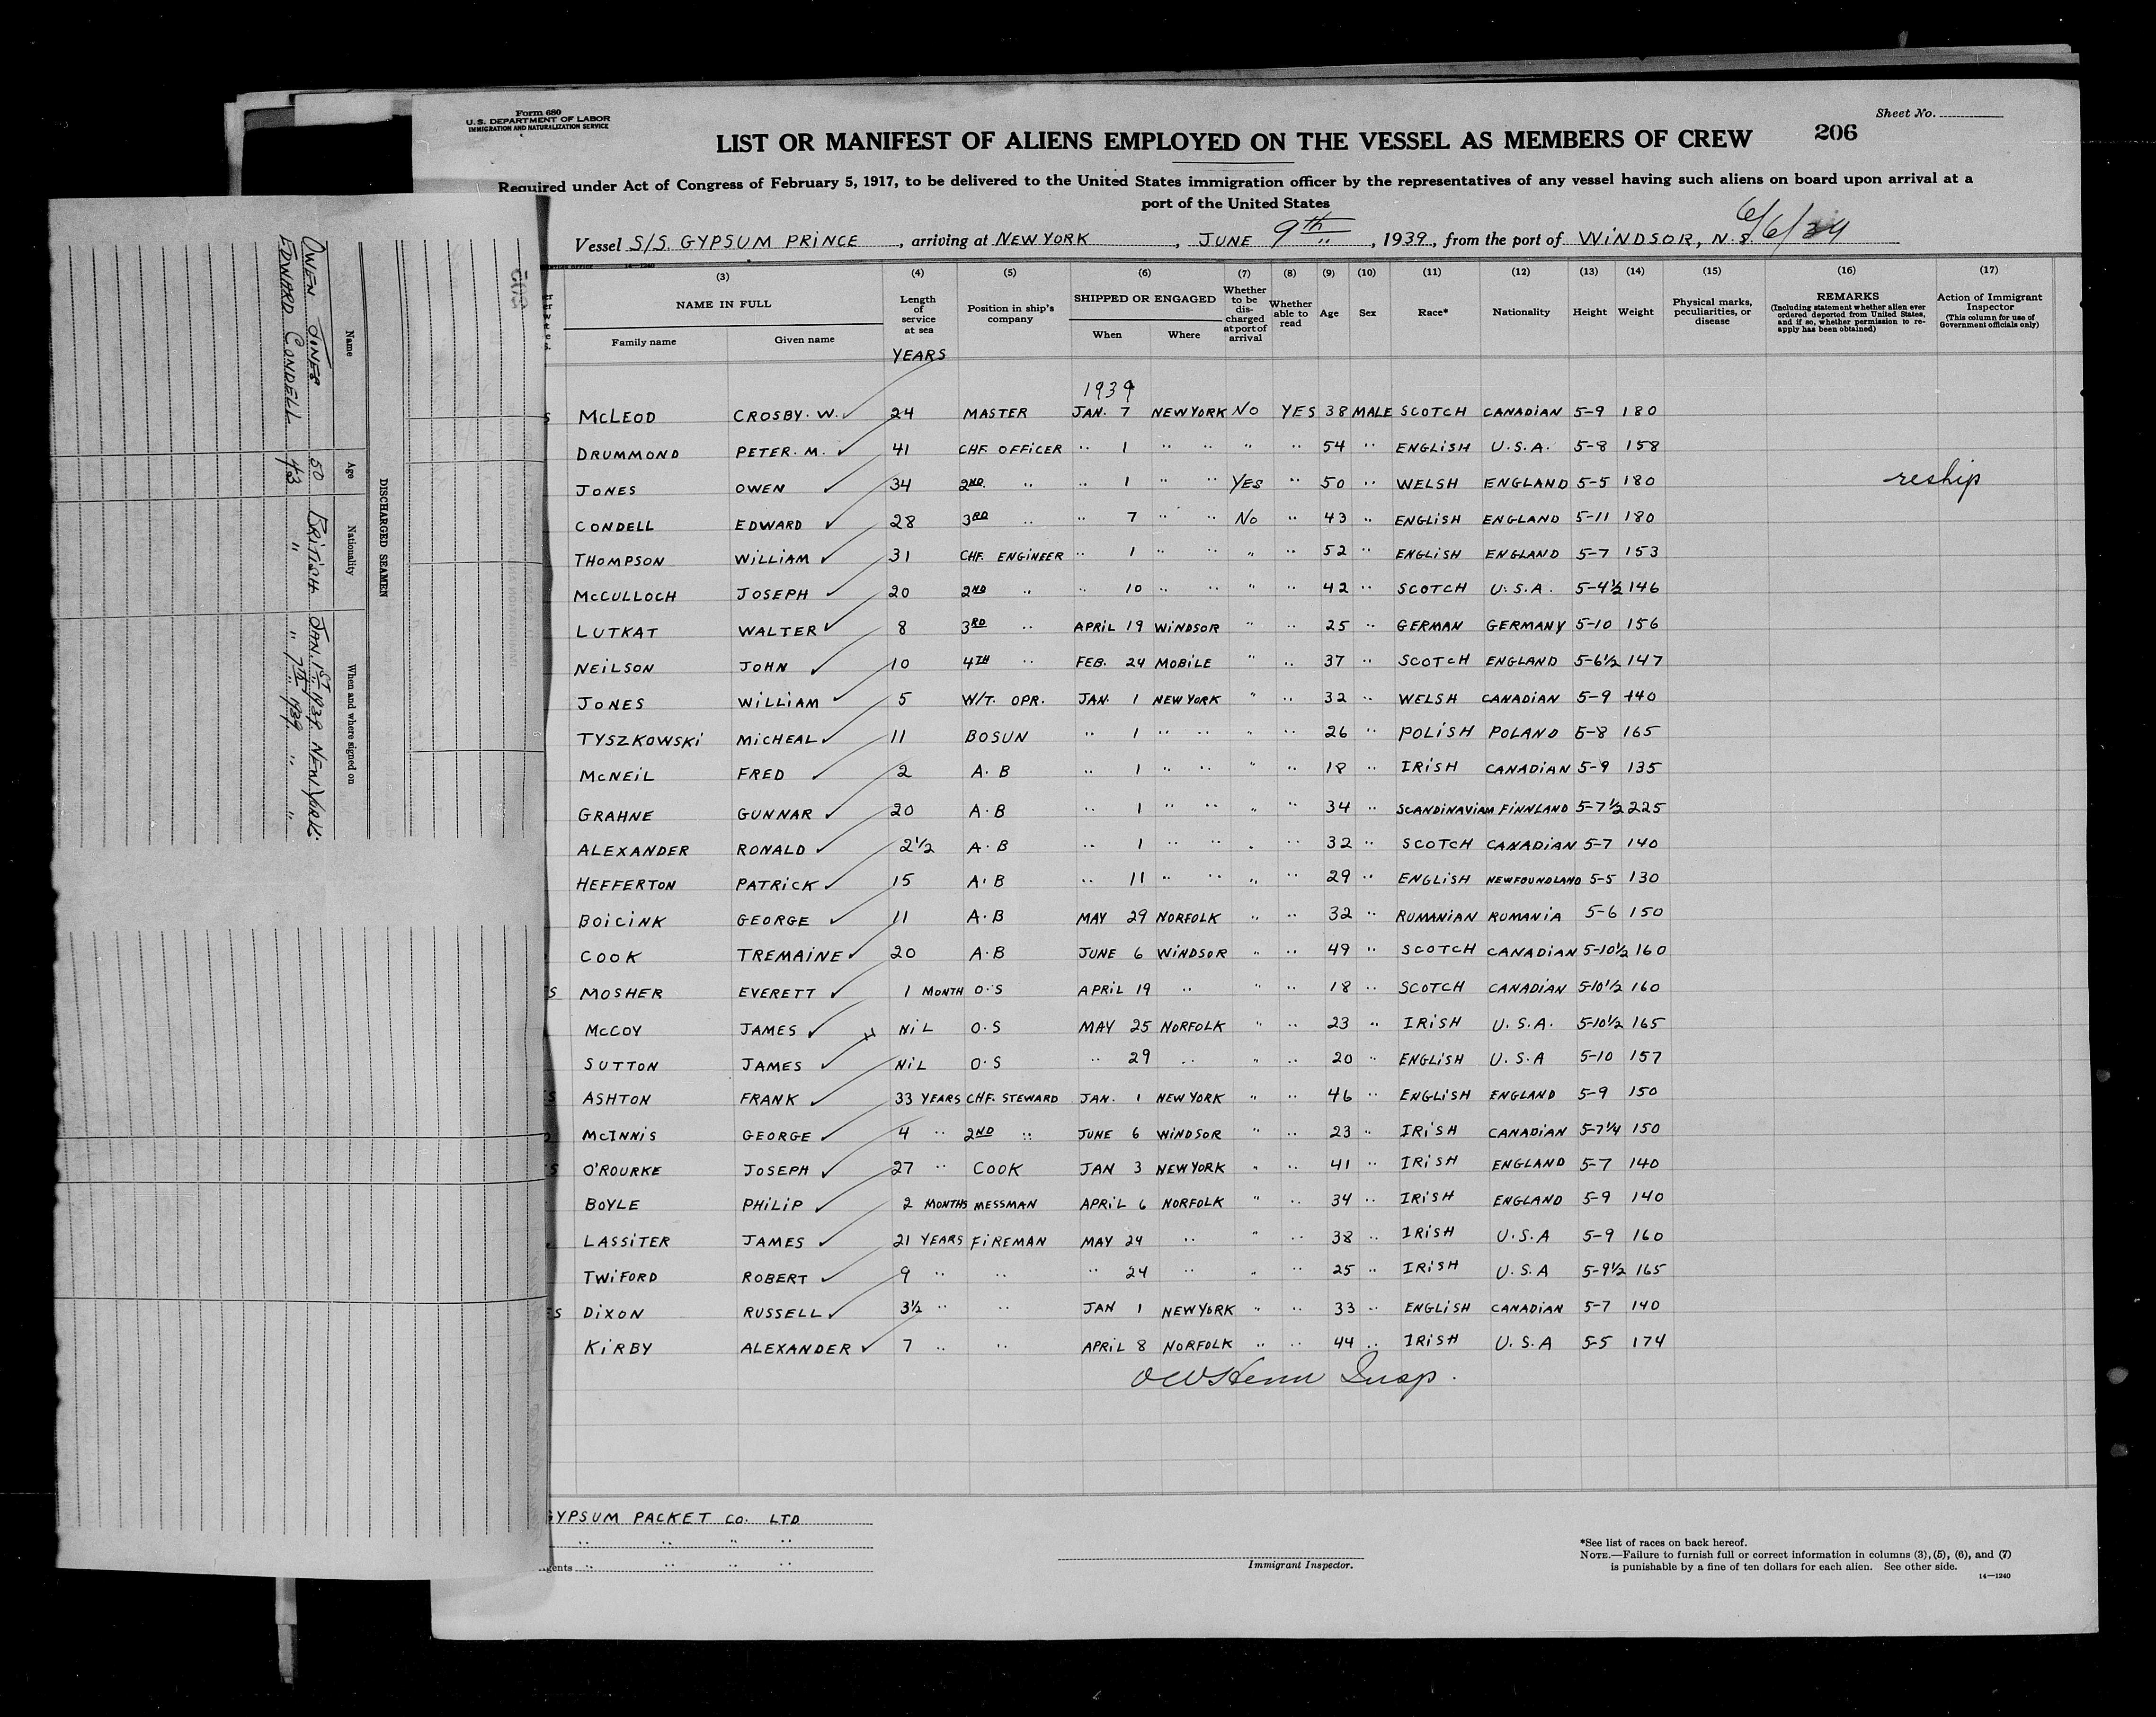 Form 680
U.S. DEPARTMENT OF LABOR
IMMIGRATION AND NATURALIZATION SERVICE
Sheet No.
LIST OR MANIFEST OF ALIENS EMPLOYED ON THE VESSEL AS MEMBERS OF CREW 206
Required under Act of Congress of February 5, 1917, to be delivered to the United States immigration officer by the representatives of any vessel having such aliens on board upon arrival at a
port of the United States
6/6/39
Vessel S/S. GYPSUM PRINCE, arriving at NEW YORK, JUNE 9th, 1939, from the port of WINDSOR, N.S.
(3) (4) (5) (6) (7) (8) (9) (10) (11) (12) (13) (14) (15) (16) (17)
NAME IN FULL Family name Given name Length of service at sea Position in ship's company SHIPPED OR ENGAGED When Where Whether to be discharged at port of arrival Whether able to read Age Sex Race* Nationality Height Weight Physical marks, peculiarities, or disease REMARKS (Including statement whether alien ever ordered deported from United States, and if so, whether permission to reapply has been obtained) Action of Immigrant Inspector (This column for use of Government officials only)
YEARS
1939
McLEOD CROSBY. W. 24 MASTER JAN. 7 NEW YORK NO YES 38 MALE SCOTCH CANADIAN 5-9 180
DRUMMOND PETER. M. 41 CHF. OFFICER " 1 " " " " 54 " ENGLISH U.S.A. 5-8 158
JONES OWEN 34 2ND " " 1 " " YES " 50 " WELSH ENGLAND 5-5 180 reship
CONDELL EDWARD 28 3RD " " 7 " " NO " 43 " ENGLISH ENGLAND 5-11 180
THOMPSON WILLIAM 31 CHF. ENGINEER " 1 " " " " 52 " ENGLISH ENGLAND 5-7 153
McCULLOCH JOSEPH 20 2ND " " 10 " " " " 42 " SCOTCH U.S.A. 5-4½ 146
LUTKAT WALTER 8 3RD " APRIL 19 WINDSOR " " 25 " GERMAN GERMANY 5-10 156
NEILSON JOHN 10 4TH " FEB. 24 MOBILE " " 37 " SCOTCH ENGLAND 5-6½ 147
JONES WILLIAM 5 W/T. OPR. JAN. 1 NEW YORK " " 32 " WELSH CANADIAN 5-9 140
TYSZKOWSKI MICHEAL 11 BOSUN " 1 " " " " 26 " POLISH POLAND 5-8 165
McNEIL FRED 2 A.B " 1 " " " " 18 " IRISH CANADIAN 5-9 135
GRAHNE GUNNAR 20 A.B " 1 " " " " 34 " SCANDINAVIAM FINNLAND 5-7½ 225
ALEXANDER RONALD 2½ A.B " 1 " " " " 32 " SCOTCH CANADIAN 5-7 140
HEFFERTON PATRICK 15 A.B " 11 " " " " 29 " ENGLISH NEWFOUNDLAND 5-5 130
BOICINK GEORGE 11 A.B MAY 29 NORFOLK " " 32 " RUMANIAN RUMANIA 5-6 150
COOK TREMAINE 20 A.B JUNE 6 WINDSOR " " 49 " SCOTCH CANADIAN 5-10½ 160
MOSHER EVERETT 1 MONTH O.S APRIL 19 " " " 18 " SCOTCH CANADIAN 5-10½ 160
McCOY JAMES NIL O.S MAY 25 NORFOLK " " 23 " IRISH U.S.A. 5-10½ 165
SUTTON JAMES NIL O.S " 29 " " " 20 " ENGLISH U.S.A 5-10 157
ASHTON FRANK 33 YEARS CHF. STEWARD JAN. 1 NEW YORK " " 46 " ENGLISH ENGLAND 5-9 150
McINNIS GEORGE 4 " 2ND " JUNE 6 WINDSOR " " 23 " IRISH CANADIAN 5-7¼ 150
O'ROURKE JOSEPH 27 " COOK JAN 3 NEW YORK " " 41 " IRISH ENGLAND 5-7 140
BOYLE PHILIP 2 MONTHS MESSMAN APRIL 6 NORFOLK " " 34 " IRISH ENGLAND 5-9 140
LASSITER JAMES 21 YEARS FIREMAN MAY 24 " " " 38 " IRISH U.S.A 5-9 160
TWIFORD ROBERT 9 " " " 24 " " " 25 " IRISH U.S.A 5-9½ 165
DIXON RUSSELL 3½ " " JAN 1 NEW YORK " " 33 " ENGLISH CANADIAN 5-7 140
KIRBY ALEXANDER 7 " " APRIL 8 NORFOLK " " 44 " IRISH U.S.A 5-5 174
Insp.
GYPSUM PACKET CO. LTD
" " " "
gents " " " "
Immigrant Inspector.
*See list of races on back hereof.
NOTE.—Failure to furnish full or correct information in columns (3), (5), (6), and (7)
is punishable by a fine of ten dollars for each alien. See other side.
14—1240
DISCHARGED SEAMEN
Name Age Nationality When and where signed on
OWEN JONES 50 BRITISH JAN. 1ST 1939 NEW YORK.
EDWARD CONDELL 43 " " 7TH 1939. " "